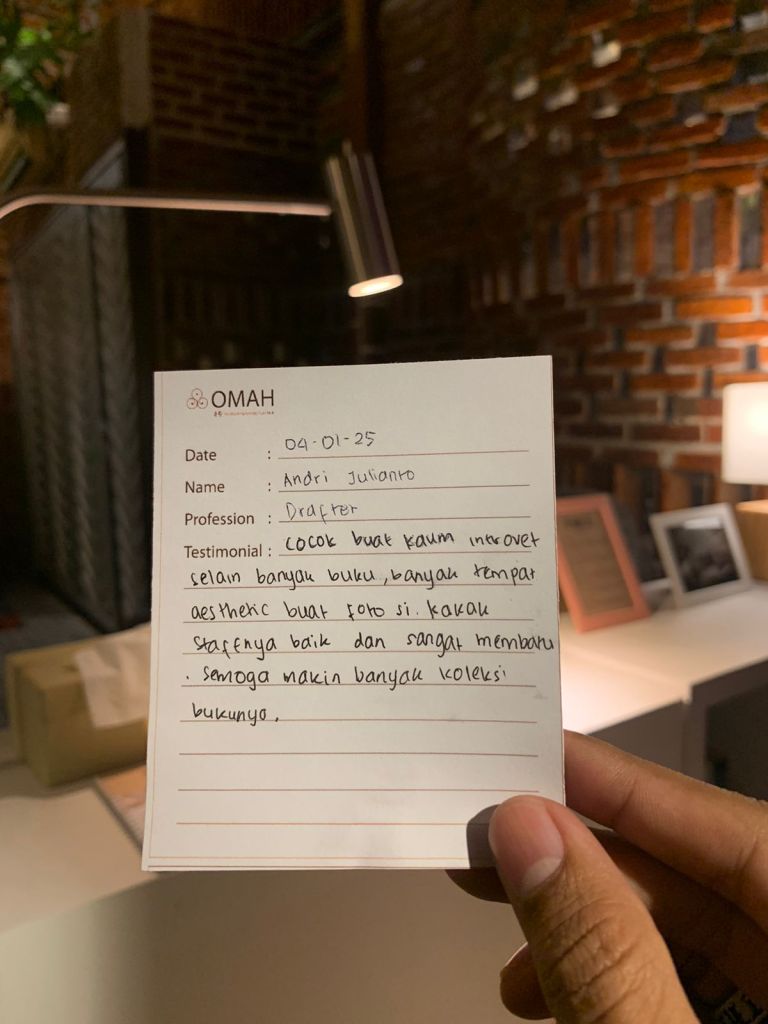 OMAH
Date : 04-01-25
Name : Andri Julianto
Profession : Drafter
Testimonial : cocok buat kaum introvet
selain banyak buku, banyak tempat
aesthetic buat foto si. kakak
staffnya baik dan sangat membatu
. semoga makin banyak koleksi
bukunya.